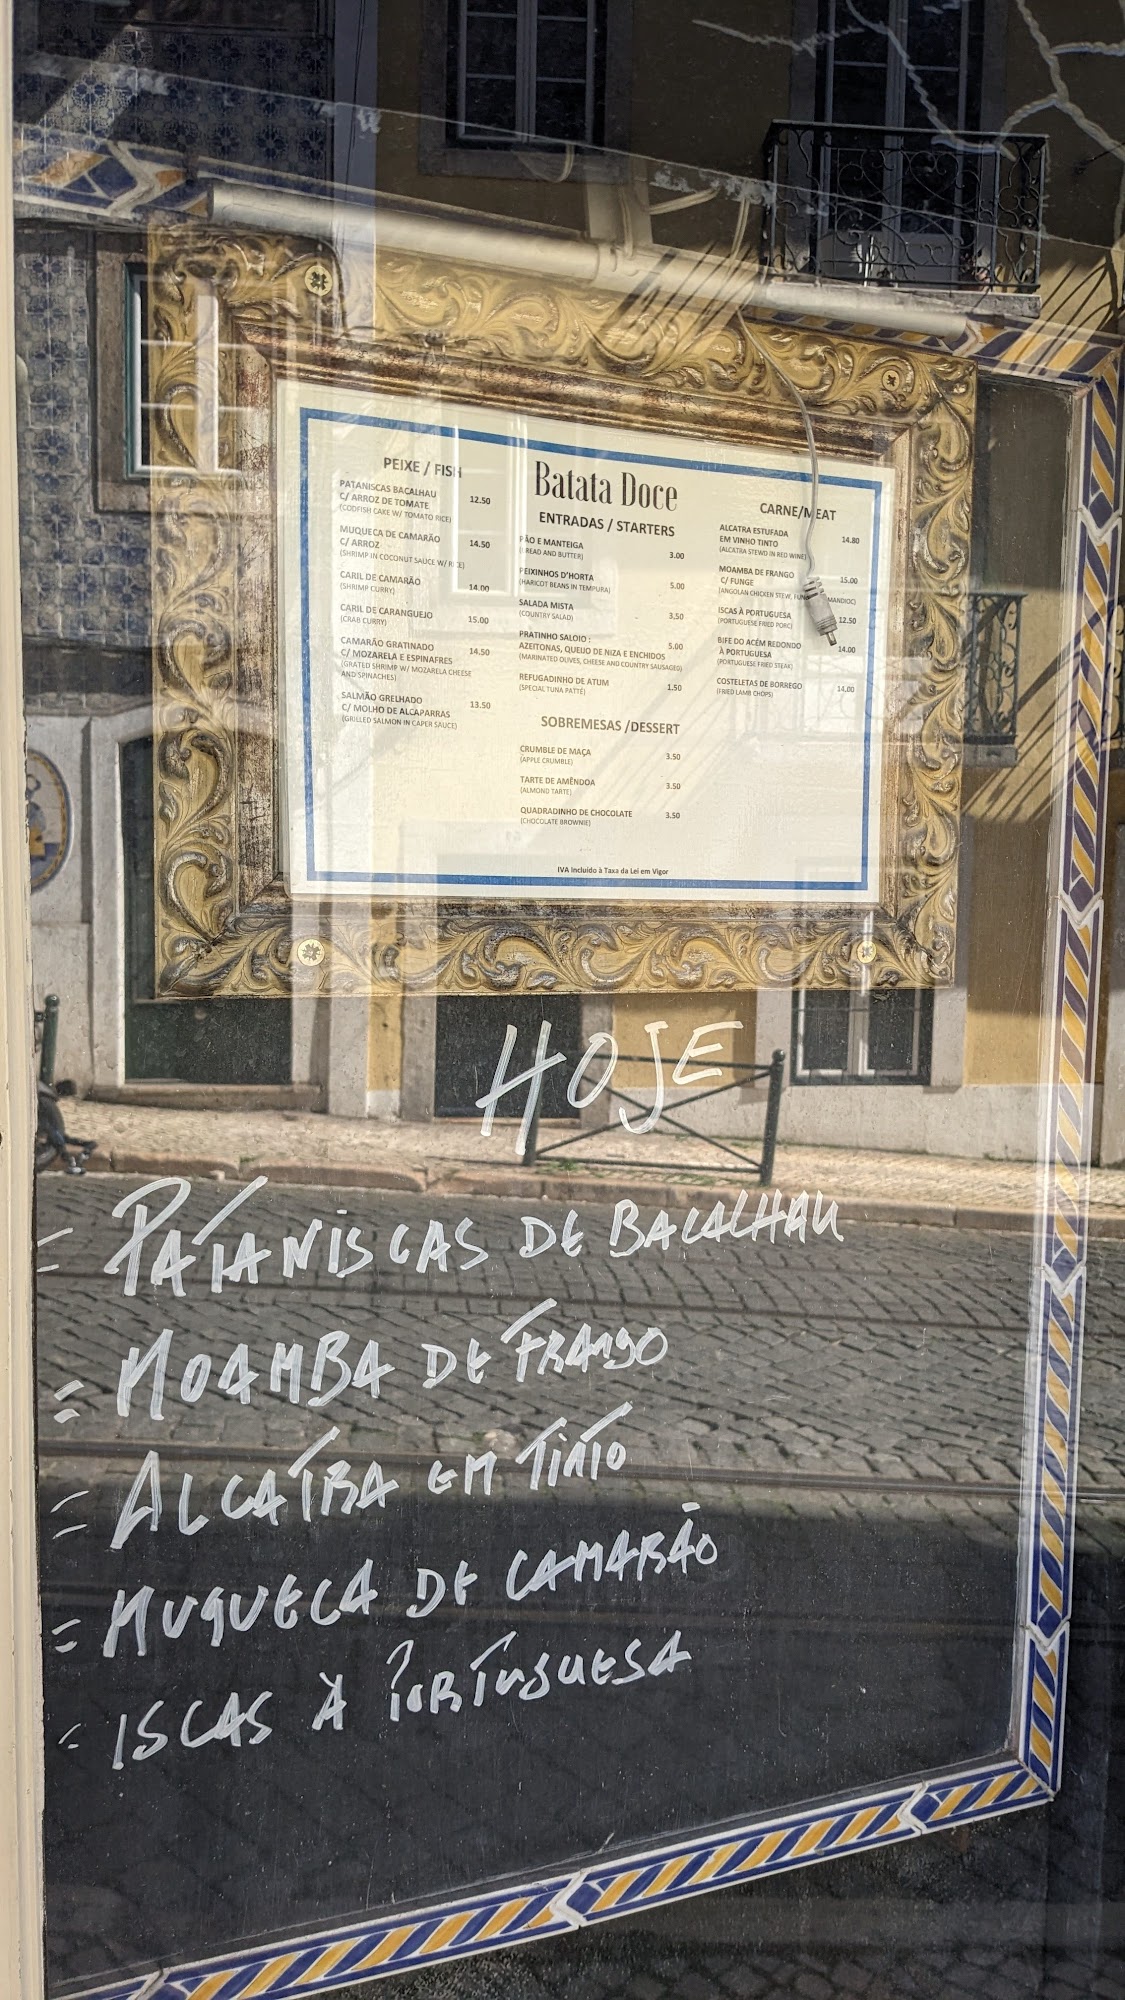 Batata Doce
PEIXE / FISH
PATANISCAS BACALHAU
C/ ARROZ DE TOMATE 12.50
(CODFISH CAKE W/ TOMATO RICE)
MUQUECA DE CAMARÃO
C/ ARROZ 14.50
(SHRIMP IN COCONUT SAUCE W/ RICE)
CARIL DE CAMARÃO 14.00
(SHRIMP CURRY)
CARIL DE CARANGUEJO 15.00
(CRAB CURRY)
CAMARÃO GRATINADO 14.50
C/ MOZARELA E ESPINAFRES
(GRATED SHRIMP W/ MOZARELA CHEESE
AND SPINACHES)
SALMÃO GRELHADO 13.50
C/ MOLHO DE ALCAPARRAS
(GRILLED SALMON IN CAPER SAUCE)
ENTRADAS / STARTERS
PÃO E MANTEIGA 3.00
(BREAD AND BUTTER)
PEIXINHOS D'HORTA 5.00
(HARICOT BEANS IN TEMPURA)
SALADA MISTA 3,50
(COUNTRY SALAD)
PRATINHO SALOIO : 5.00
AZEITONAS, QUEIJO DE NIZA E ENCHIDOS
(MARINATED OLIVES, CHEESE AND COUNTRY SAUSAGED)
REFUGADINHO DE ATUM 1.50
(SPECIAL TUNA PATTÉ)
SOBREMESAS /DESSERT
CRUMBLE DE MAÇA 3.50
(APPLE CRUMBLE)
TARTE DE AMÊNDOA 3.50
(ALMOND TARTE)
QUADRADINHO DE CHOCOLATE 3.50
(CHOCOLATE BROWNIE)
CARNE/MEAT
ALCATRA ESTUFADA
EM VINHO TINTO 14.80
(ALCATRA STEWD IN RED WINE)
MOAMBA DE FRANGO 15.00
C/ FUNGE
(ANGOLAN CHICKEN STEW, MANDIOC)
ISCAS À PORTUGUESA 12.50
(PORTUGUESE FRIED PORC)
BIFE DO ACÉM REDONDO 14.00
À PORTUGUESA
(PORTUGUESE FRIED STEAK)
COSTELETAS DE BORREGO 14.00
(FRIED LAMB CHOPS)
IVA Incluído à Taxa da Lei em Vigor
HOJE
= PATANISCAS DE BACALHAU
= MOAMBA DE FRANGO
= ALCATRA EM TINTO
= MUQUECA DE CAMARÃO
= ISCAS À PORTUGUESA